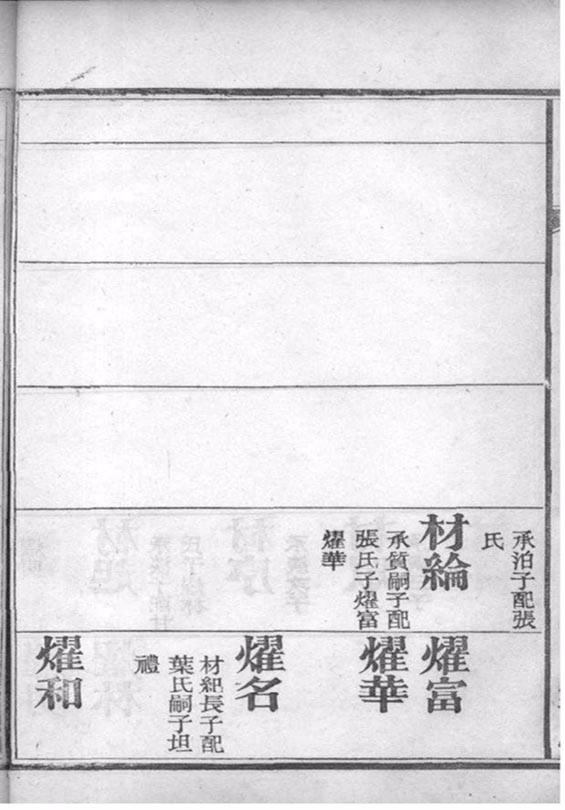 承泊子配張
氏
材綸
承質嗣子配
張氏子燿富
燿華
燿富
燿華
燿名
材紀長子配
葉氏嗣子坦
禮
燿和